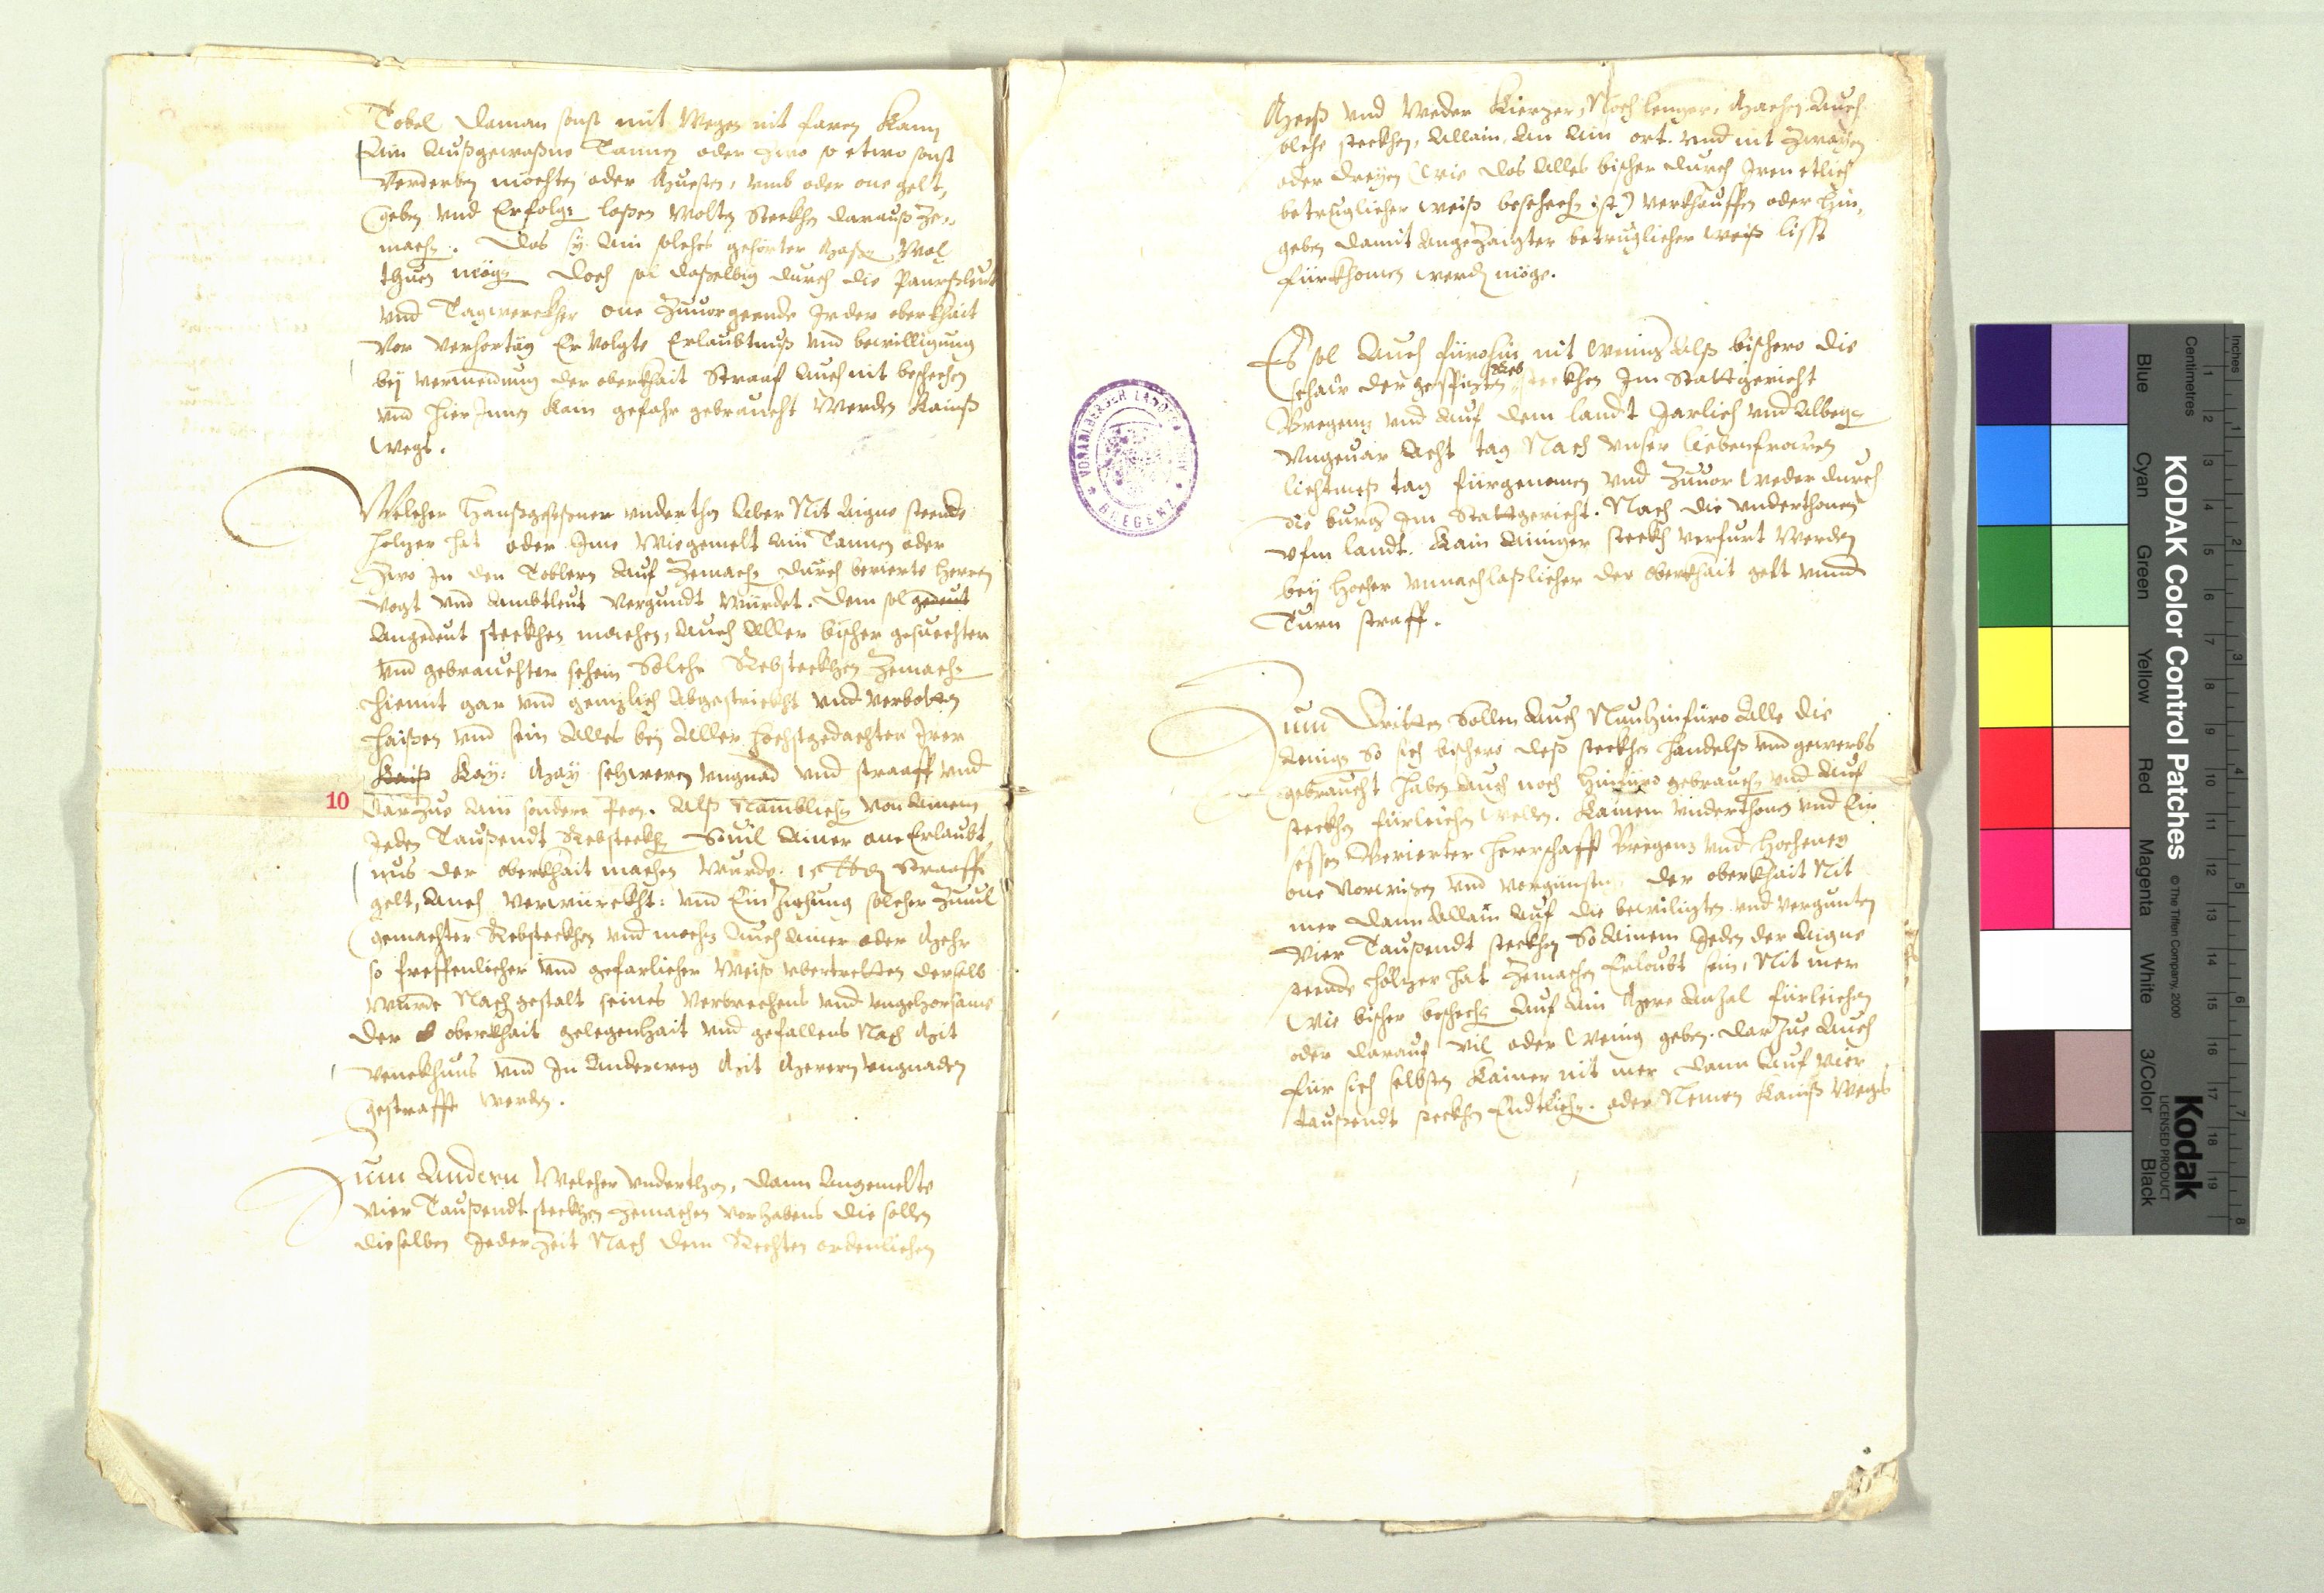 Tobel daman sonst mit Wegen nit faren kann
Ain Außgewaßne Tannen oder zwo so etwo sonst
verderben möchten oder Müesten, umb oder one gelt,
geben vnd Erfolgen laßen wolten Steckhen darauß Ze=
machen. das sy Ain solches gehörter maßen wol
thuen mögen doch sol dasselbig durch die Paurßleut
vnd Tagwerckher one Zuuorgeende Jrer oberkhait
vor verhörtag Ervolgte Erlaubtnuß vnd bewilligung
bej vermeidung der oberkhait Straaf Auch nit beschechen
vnd hierJnnen kain gefahr gebraucht werden kainß
wegs.
Welcher Haußgeseßner vnderthon Aber Nit Aigne steende
hölzer hat oder Jme wie gemelt Ain Tannen oder
Zwo Jn den Toblern Auf Zemachen durch berierte herren
vogt vnd Ambtleut vergundt würdet. dem sol gedeut
Angedeut steckhen machen, Auch Aller bischer gesuechter
vnd gebrauchter schein Solche Rebsteckhen Zemachen
hiemit gar vnd genzlich Abgestrickht vnd verbotten
haißen vnd sein Alles bej Aller höchstgedachter Jrer
Kaiß Kay: May schweren vngnad vnd straaff vnd
darzue Ain sondere Peen. Alß Namblichen von Ainem
Jeden Taußendt Rebsteckhen Souil Ainer one Erlaubt=
nus der oberkhait machen wurde. 1 lb d Straaff
gelt, Auch verwürckht: vnd EinZiehung solcher Zuuil
gemachter Rebsteckhen vnd mochen Auch Ainer oder Mehr
so freffenlicher vnd gefarlicher weiß vbertretten derselb
wurde Nach gestalt seines verbrechens vnd vngehorsams
der oberkhait gelegenhait vnd gefallens Nach Mit
venckhnus vnd Jn Anderweg Mit Merern vngnaden
gestrafft werden.
Zum Andern Welcher vnderthon, dann Angemelte
vier Taußendt steckhen Zemachen vorhabens die sollen
dieselben Jeder Zeit Nach dem Rechten ordenlichen
10
Meeß vnd weder kierzer, Noch lenger, Machen Auch
solche steckhen, Allain An Ain ort. vnd nit Zwayen
oder dreyen (wie das Alles bischer durch Jren etlich
betruglicher weiß beschechen ist) verkhauffen oder hin,
geben damit AngeZaigter betruglicher weiß lisst
fürkhomen werden möge.
Es sol Auch fürohin nit weniger Alß bischero die
schaw der Reb steckhen Jm Stattgericht
Bregenz vnd Auf dem landt Jarlich vnd Albegen
vngeuar Acht tag Nach vnser liebenfrawen
liechtmeß tag fürgenomen vnd Zuuor weder durch
die burger Jm Stattgericht. Nach die vnderthonen
vfm landt. kain Ainiger steckhen verfürt werden
bej hocher vnnachlaßlicher der oberkhait gelt vnnd
Turn straff.
Zum Dritten Sollen Auch Nun hinfüro Alle die
Jenigen So sich bischero deß steckhen handelß vnd gewerbs
gebraucht haben Auch noch hinfüro gebrauchen vnd Auf
steckhen fürleichen wellen. kainem vnderthonen vnd Ein
sessen Berierter Herrschafft Bregenz vnd Hochenegg
one vorwissen vnd vergünsten der oberkhait Nit
mer dann Allain Auf die bewiligten vnd vergunten
vier Taußendt steckhen So Ainem Jeden der Aigne
steende hölzer hat Zemachen Erlaubt sein, Nit mer
wie bischer beschechen Auf Ain Mere Anzal fürleichen
oder darauf vil oder wenig geben. darZue Auch
für sich selbsten kainer nit mer dann Auf vier
taußendt steckhen Endtlichen. oder Nemen kainß wegs
VORARLBERGER LANDESARCHIV
BREGENZ
KODAK Color Control Patches
© The Tiffen Company, 2000
Kodak
LICENSED PRODUCT
Inches
Centimetres
Blue
Cyan
Green
Yellow
Red
Magenta
White
3/Color
Black